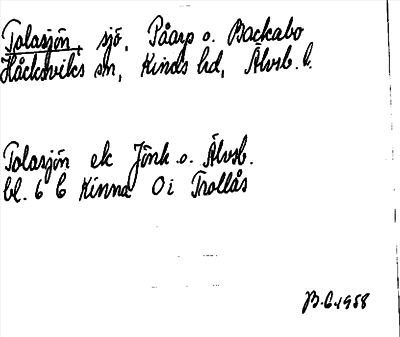 Tolasjön, sjö, Påarp o. Backabo
Håcksviks sn, Kinds hd, Älvsb. l.
Tolasjön ek Jönk o. Älvsb.
bl. 6 C Kinna 0 i Trollås
B.C. 1958